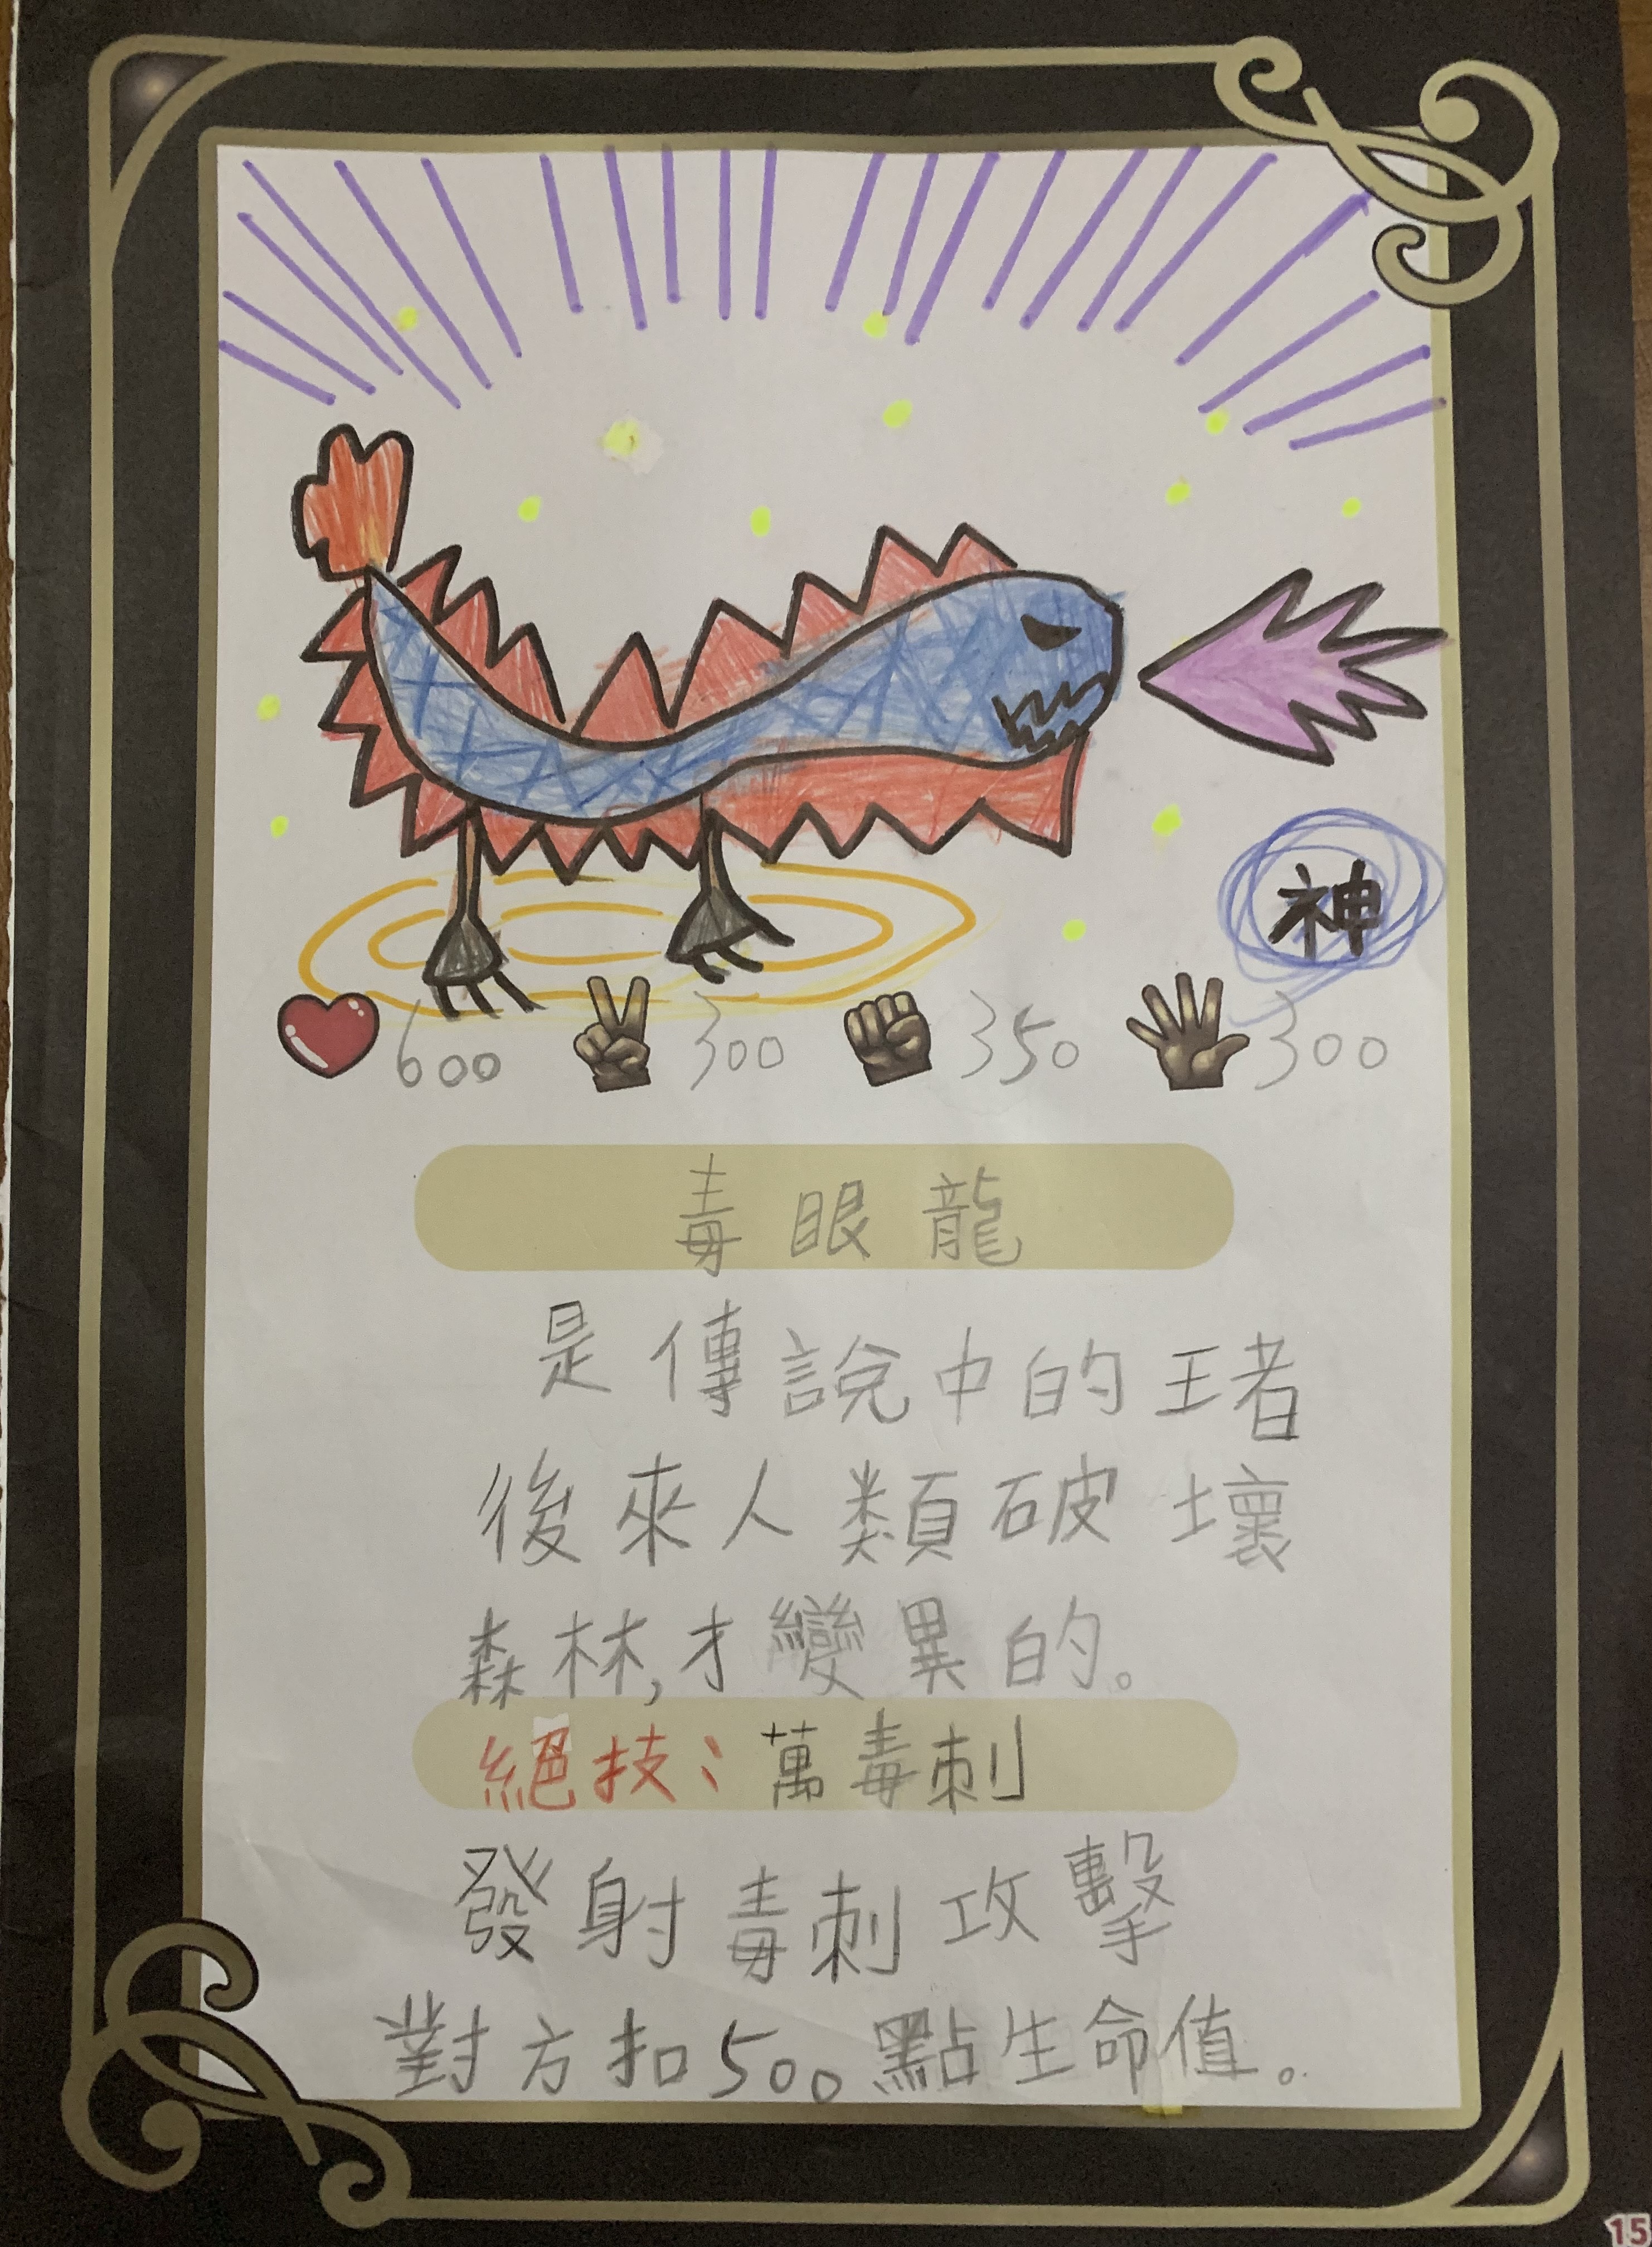 神
600 300 350 300
毒眼龍
是傳說中的王者
後來人類破壞
森林,才變異的。
絕技:萬毒刺
發射毒刺攻擊
對方扣500點生命值。
15